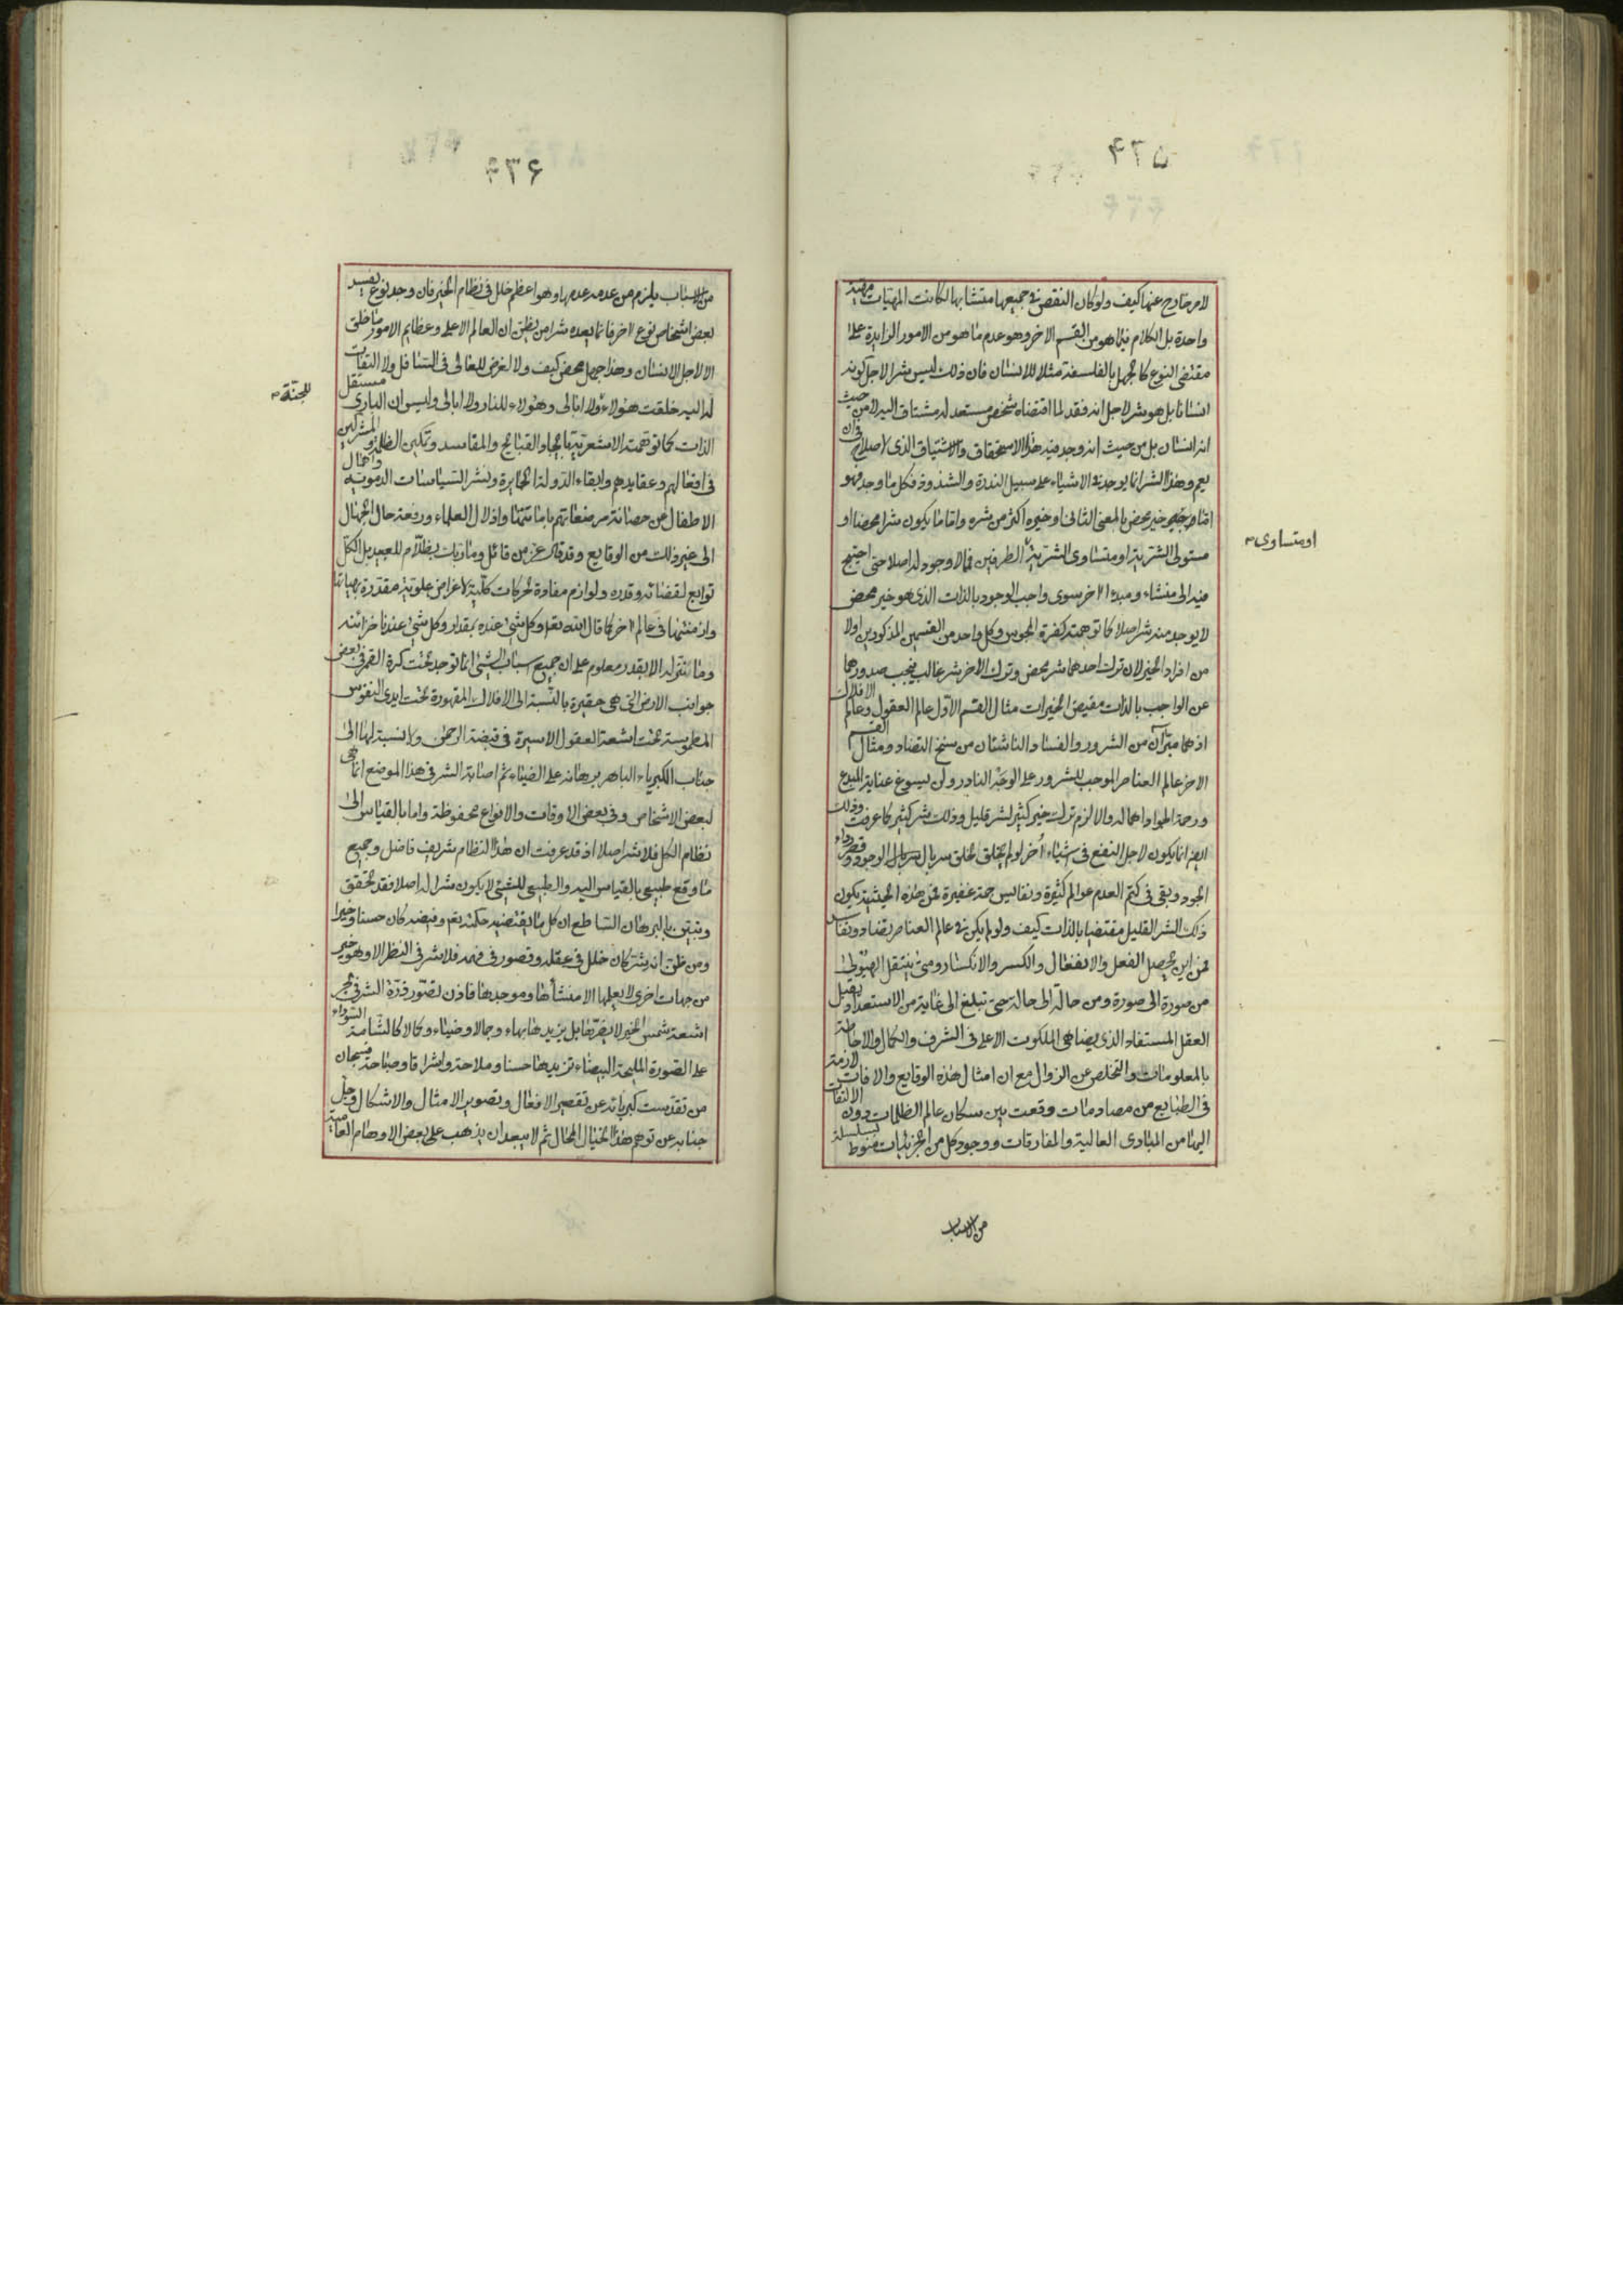 ٤٣٥
لامر خارج عنها كيف ولو كان النقص فى جميعها متشابها لكانت المهيات مهية
واحدة بل الكلام فيما هو من القسم الاخر وهو عدم ما هو من الامور الزايدة على
مقتضى النوع كالجهل بالفلسفة مثلا للانسان فان ذلك ليس شرا لاجل كونه
انسانا بل هو شر لاجل انه فقد لما اقتضاه شخص مستعد له مشتاق اليه لا من حيث
انه انسان بل من حيث انه وجد فيه هذا الاستحقاق والاشتياق الذى لا صلاح فى ان
يعم وهذا الشر انما يوجد فى الاشياء على سبيل الندرة والشذوذ فكل ما وجد فهو
اما خير محض بالمعنى الثانى او خيره اكثر من شره واما ما يكون شرا محضا او
مستولى الشرية او متساوى الشرية الطرفين فما لا وجود له اصلا حتى احتيج
او متساوى
فيه الى منشاء ومبدء اخر سوى واجب الوجود بالذات الذى هو خير محض
لا يوجد منه شر اصلا كما توهمته كفرة المجوس وكل واحد من القسمين المذكورين اولا
من افراد الخير لان ترك احدهما شر محض وترك الاخر شر غالب فيجب صدورهما
عن الواجب بالذات مفيض الخيرات مثال القسم الاول عالم العقول وعالم الافلاك
اذ هما مبرّآن من الشرور والفساد الناشئان من سنخ التضاد ومثال القسم
الاخر عالم العناصر الموجب للشرور على الوجه النادر ولن يسوغ عناية المبدع
ورحمة الجواد اهماله والا لزم ترك خير كثير لشر قليل وذلك شر كثير كما عرفت وذلك
ايضا انما يكون لاجل النفع فى اشياء أخر لو لم يخلق لخلق سربال الوجود وقصر رداء
الجود وبقى فى كتم العدم عوالم كثيرة ونفايس جمة غفيرة فمن هذه الحيثية يكون
ذلك الشر القليل مقتضيا بالذات كيف ولو لم يكن فى عالم العناصر تضاد وتفاسد
فمن اين يحصل الفعل والانفعال والكسر والانكسار ومتى ينتقل الهيولى
من صورة الى صورة ومن حالة الى حالة حتى تبلغ الى غاية من الاستعداد يقبل
العقل المستفاد الذى يضاهى الملكوت الاعلى فى الشرف والكمال والاحاطة
بالمعلومات والتخلص عن الزوال مع ان امثال هذه الوقايع والافات لازمة
فى الطبايع من مصادمات وقعت بين سكان عالم الظلمات دون الالتفات
اليها من المبادى العالية والمفارقات ووجود كل من الجزئيات منوط بسلسلة
من الاسباب
٤٣۶
من الاسباب يلزم من عدمه عدمها وهو اعظم خلل فى نظام الخير فان وجد نوع يفسد
بعض اشخاص نوع لاخر فانما يعده شرا من يظن ان العالم الاعلى وعظايم الامور ما خلق
الا لاجل الانسان وهذا جهل محض كيف ولا لغرض للعالى فى السافل ولا التفات
له اليه خلقت هؤلاء ولا ابالى وهؤلاء للنار ولا ابالى وليس ان البارى مستقل
للجنة
الذات كما توهمته الاشعرية بايجاد القبائح والمفاسد وتمكين الظلمة والمشركين
فى افعالهم وعقايدهم وابقاء الدولة الجابرة ونشر السياسات الدموية واهمال
الاطفال عن حصانة مرضعاتهم بإماتتها واذلال العلماء ورفعة حال الجهال
الى غير ذلك من الوقايع وقد قال عز من قائل وما ربك بظلّام للعبيد بل الكل
توابع لقضائه وقدره ولوازم مفادة لحركات كلية لاغراض علوية مقدرة بهيئاتها
وازمنتها فى عالم اخر كما قال الله تعالى وكل شىء عنده بمقدار وكل شىء عندنا خزائنه
وما ننزله الا بقدر معلوم على ان جميع اسباب الشىء انما توجد تحت كرة القمر فى بعض
جوانب الارض التى هى حقيرة بالنسبة الى الافلاك المقهورة تحت ايدى النفوس
المطموسة تحت اشعة العقول الاسيرة فى قبضة الرحمن ولا نسبة لها الى
جناب الكبرياء الباهر برهانه على الضياء ثم اصابة الشر فى هذا الموضع انما هى
لبعض الاشخاص وفى بعض الاوقات والانواع محفوظة واما بالقياس الى
نظام الكل فلا شر اصلا اذ قد عرفت ان هذا النظام شريف فاضل وجميع
ما وقع طبيعى بالقياس اليه والطبيعى للشئى لا يكون شرا له اصلا فقد تحقق
وتبين بالبرهان الساطع ان كل ما يقتضيه حكمته تعم وفيضه كان حسنا وخيرا
ومن ظن انه شر كان خلل فى عقله وقصور فى فهمه فلا شر فى النظر الا وهو خير
من جهات اخرى لا يعلمها الا منشأها وموجدها فاذن تصور قذرة الشر فى بحر
اشعة شمس الخير لا يضرها بل يزيدها بهاء وجمالا وضياء وكمالا كالشامة السوداء
على الصورة المليحة البيضاء تزيدها حسنا وملاحة واشراقا وصباحة فسبحان
من تقدست كبرياته عن تقصير الافعال وتصوير الامثال والاشكال وجل
جنابه عن توهم هذا الخيال المحال ثم لا يبعد ان يذهب على بعض الاوهام العامية